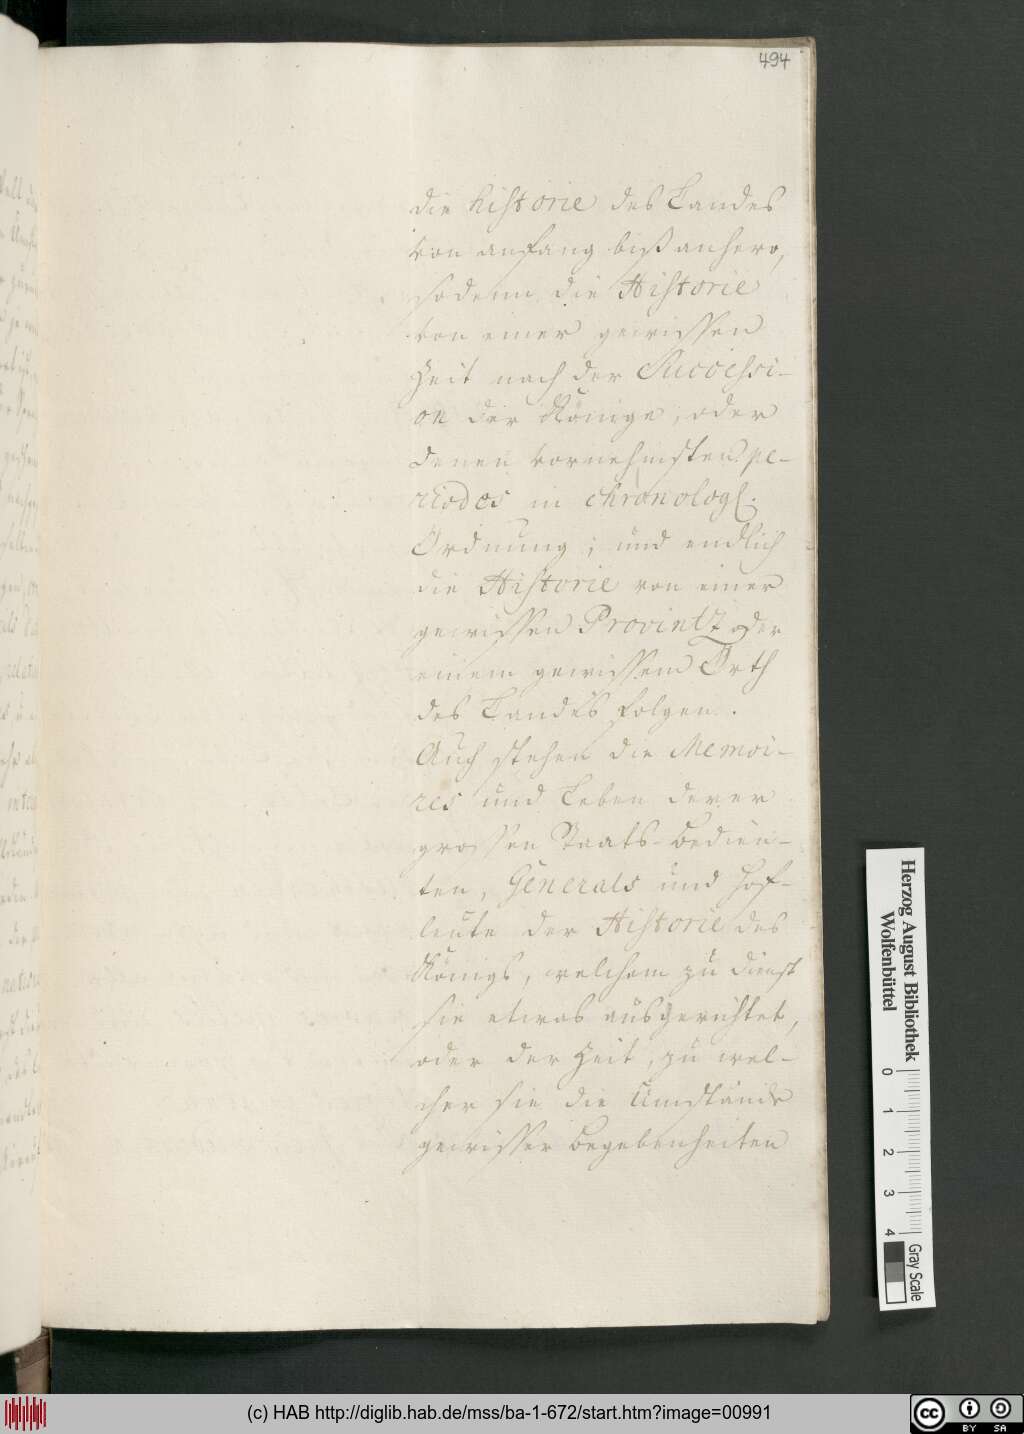 494
die Historie des Landes
von anfang biß anhero,
sodenn die Historie
von einer gewissen
Zeit nach der Successi-
on der Könige, oder
denen vornehmsten pe-
riodes in chronologl.
Ordnung; und endlich
die Historie von einer
gewissen Provintz oder
einem gewissem Orth
des Landes folgen.
Auch stehen die Memoi-
res und Leben derer
grossen Staats-Bedien-
ten, Generals und Hof-
leute der Historie des
Königs, welchem zu dienst
sie etwas ausgerichtet,
oder der Zeit, zu wel-
cher sie die Umstände
gewisser Begebenheiten
Herzog August Bibliothek
Wolfenbüttel
0 1 2 3 4
Gray Scale
(c) HAB http://diglib.hab.de/mss/ba-1-672/start.htm?image=00991
cc BY SA